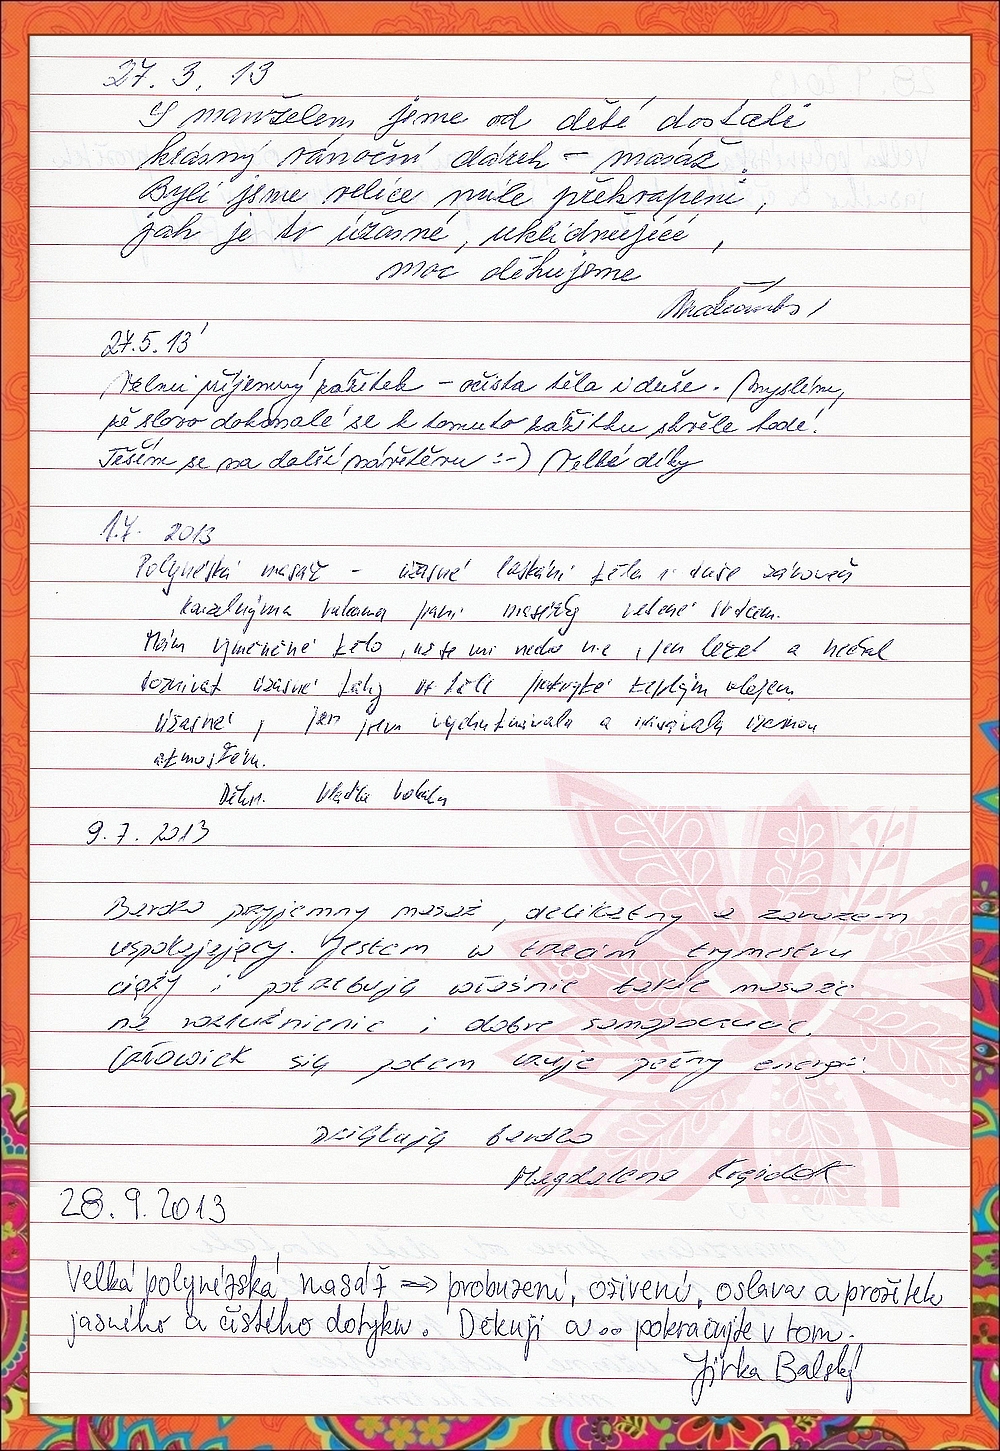 27. 3. 13
S manželem jsme od dětí dostali
krásný vánoční dárek – masáž.
Byli jsme velice mile překvapeni,
jak je to úžasné, uklidňující,
moc děkujeme
27.5.13
Velmi příjemný zážitek – očista těla i duše. Myslím,
že slovo dokonalé se k tomuto zážitku skvěle hodí!
Těším se na další návštěvu :-) Velké díky
1.7. 2013
Polynéská masáž – úžasné laskání těla i duše zároveň
kouzelnýma rukama paní masérky vedené srdcem.
Mám tělo, už se mi nechce nic, jen ležet a nechal
doznívat úžasné tahy po těle teplým olejem
Úžasné, jen jsem vychutnávala a úžasnou
atmosféru.
Děkuji. Vlaďka
9. 7. 2013
Bardzo przyjemny masaż, delikatny a zarazem
uspokajający. Jestem w trzecim trymestru
ciąży i potrzebują właśnie takie masaże
na rozluźnienie i dobre samopoczucie.
Człowiek się potem czuje pełny energii.
Dziękują bardzo
Magdalena
28. 9. 2013
Velká polynézská masáž => probuzení, oživení, oslava a prožitek
jasného a čistého dotyku. Děkuji a.. pokračujte v tom.
Jirka Balský